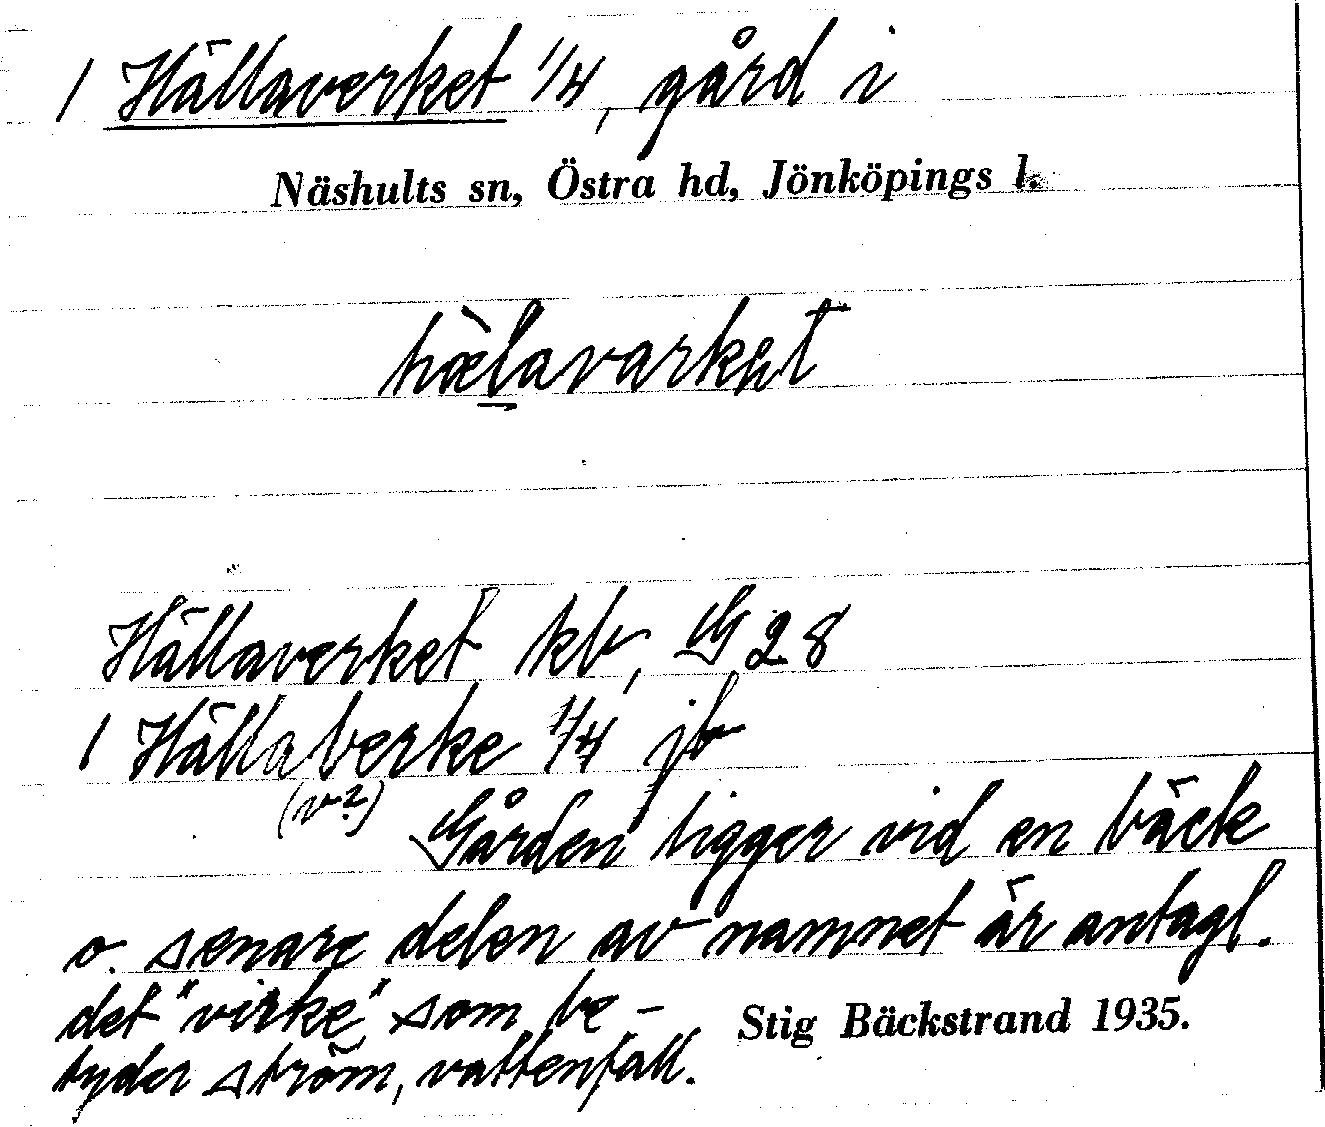 1 Hällaverket 1/4, gård i
Näshults sn, Östra hd, Jönköpings l.
hæ̀lavarket
Hällaverket kb, G 28
1 Hällaberke 1/4 jb
(v?)
Gården ligger vid en bäck
o. senare delen av namnet är antagl.
det "virke" som be-
tyder ström, vattenfall.
Stig Bäckstrand 1935.